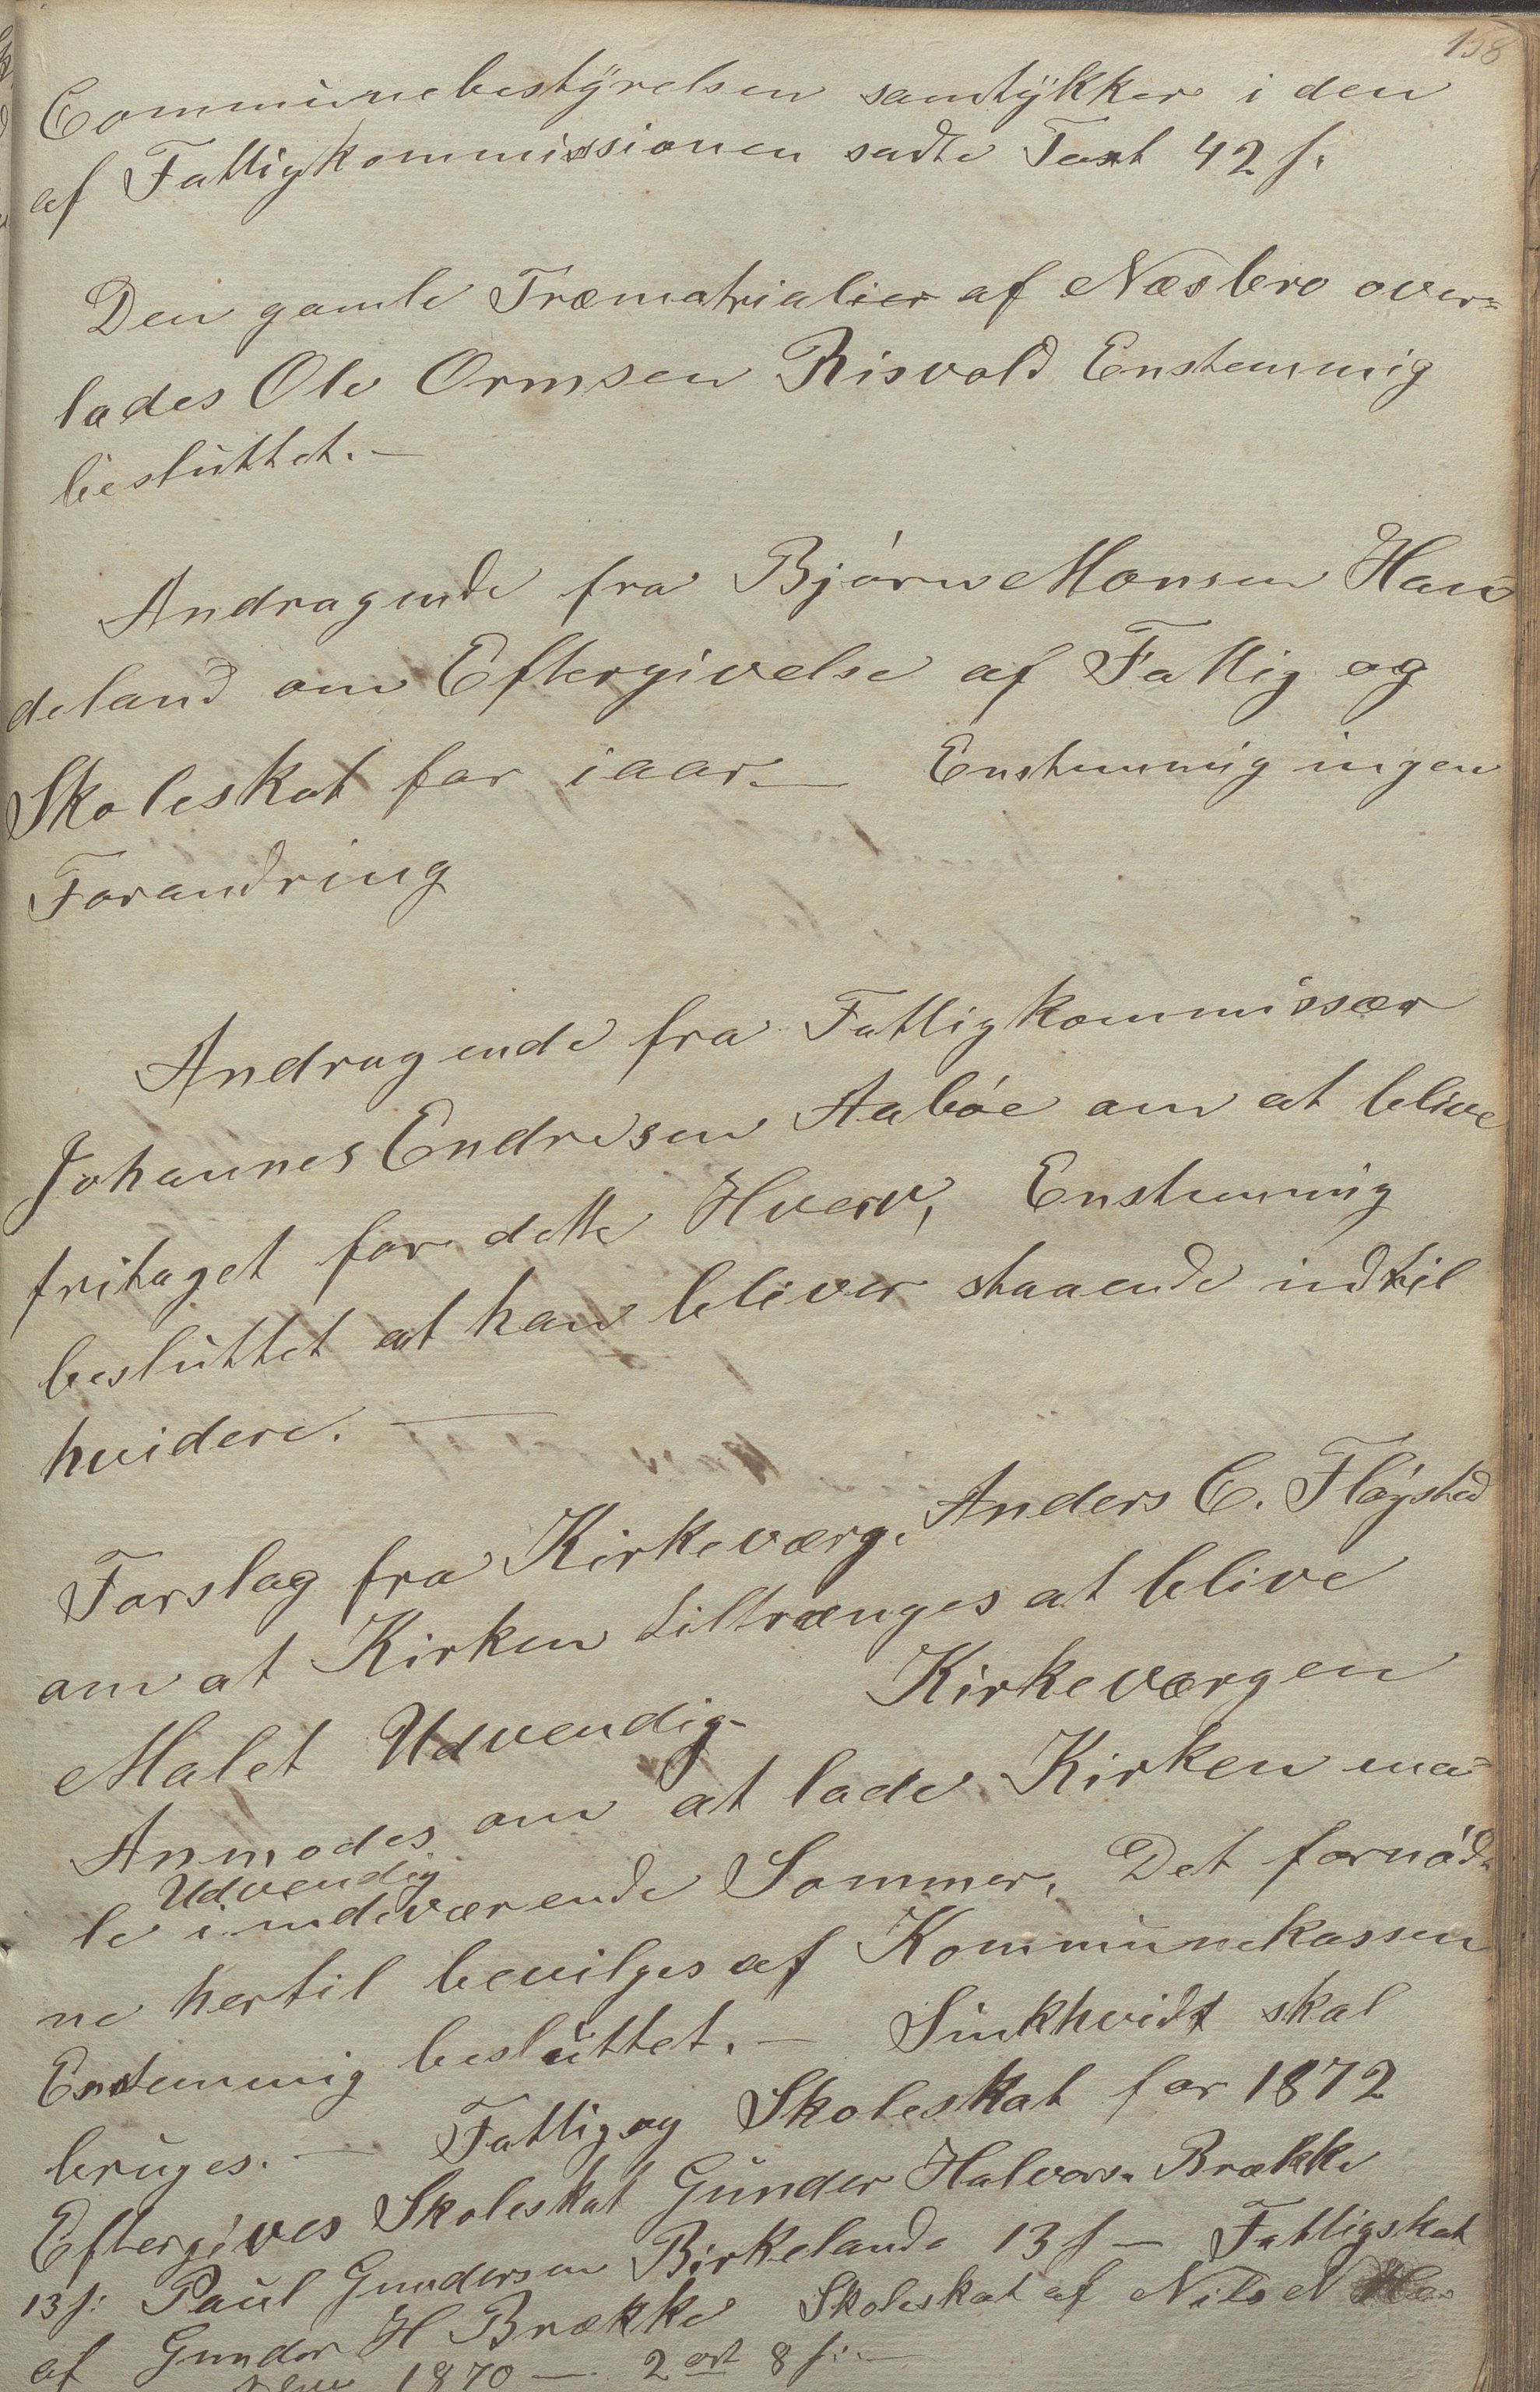 158
Communebestÿrelsen samtÿkker i den
af Fattigkommissionen sadte Taxt 42 s.
Den gamle Træmatrialier af Næsbro over=
lades Ole Ormsen Risvold Enstemmig
besluttet. —
Andragende fra Bjørn Monsen Hau
deland om Eftergivelse af Fattig og
Skoleskat for iaar. — Enstemmig ingen
Forandring
Andragende fra Fattigkommissær
Johannes Endresen Aabøe om at blive
fritaget for dette Hverv, Enstemmig
besluttet at han bliver staaende indtil
hvidere. —
Forslag fra Kirkeværge Anders C. Fløgsted
om at Kirken tiltrænges at blive
Malet Udvendig – Kirkeværgen
Anmodes om at lade Kirken ma=
Udvendig
le i indeværende Sommer, Det fornød
ne hertil bevilges af Kommunekassen
Enstemmig besluttet. — Sinkhvidt skal
bruges. — Fattig og Skoleskat for 1872
Eftergives Skoleskat Gunder Halvors. Brække
13 s: Paul Gundersen Birkelande 13 s — Fattigskat
af Gunder H Brække Skoleskat af Nils N
1870 — 2 ort 8 s: —